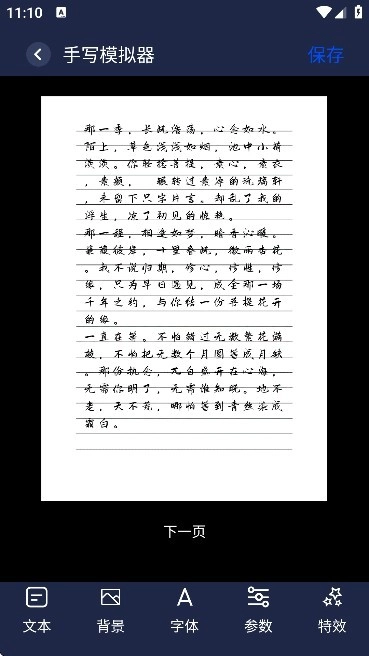 11:10
A
手写模拟器
保存
那一季，长风浩荡，心念如水。
陌上，草色浅浅如烟，池中小荷
淡淡。你轻捻菩提，素心，素衣
，素颜，
，未留下只字片言。却乱了我的
浮生，凉了初见的惊艳。
那一程，相逢如梦，暗香沁暖。
蒹葭彼岸，十里春风，微雨杏花
。我不说归期，修心，修性，修
缘，只为早日遇见，成全那一场
千年之约，与你结一份菩提花开
的缘。
一直在等。不怕错过无数繁花满
枝，不怕把无数个月圆等成月缺
。那份执念，兀自盛开在心海，
无需你明了，无需谁知晓。地不
老，天不荒，哪怕等到青丝染成
霜白。
下一页
文本
背景
字体
参数
特效